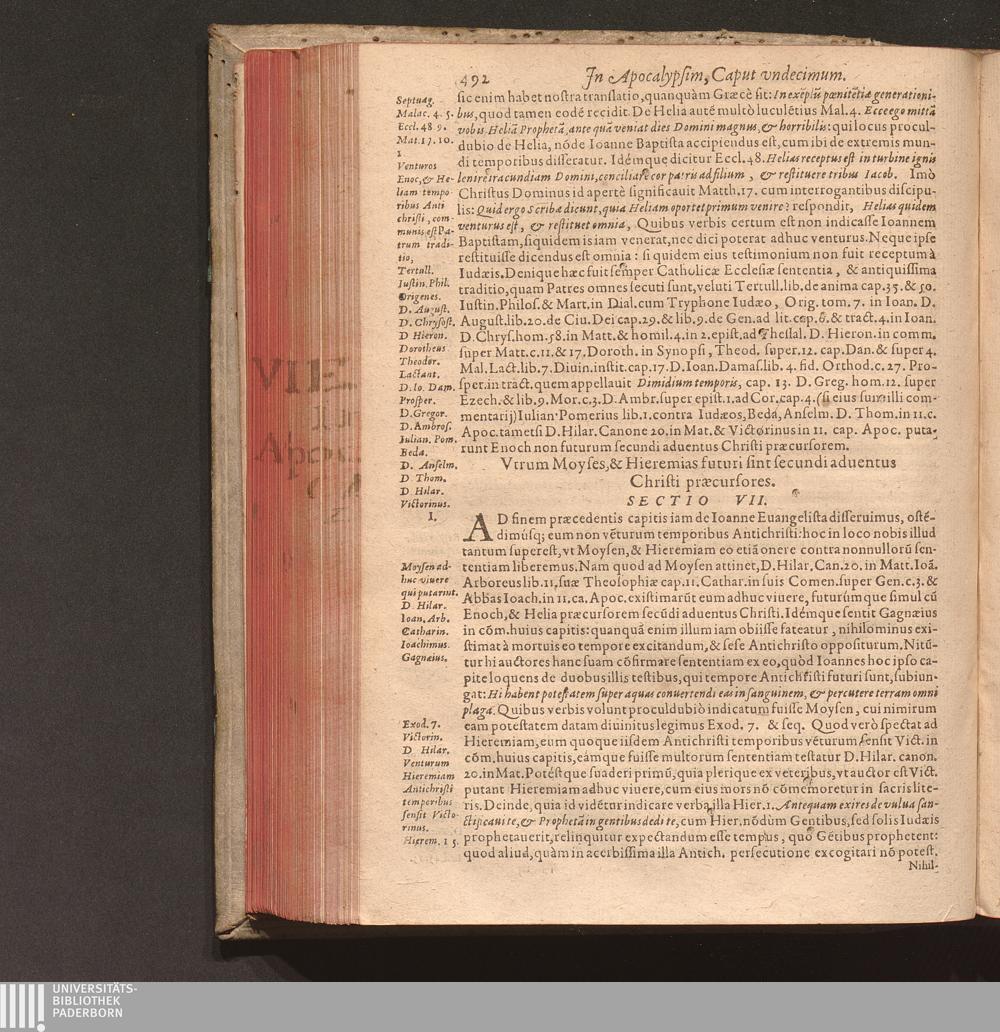 492
In Apocalypsim, Caput vndecimum.
Septuag.
Malac. 4. 5.
Eccl. 48 9.
Mat. 17. 10.
1
Venturos
Enoc, & He-
liam tempo-
ribus Anti
christi, com-
munis est Pa-
trum tradi-
tio,
Tertull.
Iustin. Phil.
Origenes.
D. August.
D. Chrysost.
D Hieron.
Dorotheus
Theodor.
Lactant.
D. Io. Dam.
Prosper.
D. Gregor.
D. Ambros.
Iulian. Pom.
Beda.
D. Anselm.
D Thom.
D Hilar.
Victorinus.
sic enim habet nostra translatio, quanquàm Græcè sit: In exēplū pœnitētiæ generationi-
bus, quod tamen eodē recidit. De Helia autē multò luculētius Mal. 4. Ecce ego mittā
vobis Heliā Prophetā, ante quā veniat dies Domini magnus, & horribilis: qui locus procul-
dubio de Helia, nō de Ioanne Baptista accipiendus est, cum ibi de extremis mun-
di temporibus disseratur. Idémque dicitur Eccl. 48. Helias receptus est in turbine ignis
lenire iracundiam Domini, conciliare cor patris ad filium, & restituere tribus Iacob. Imò
Christus Dominus id apertè significauit Matth. 17. cum interrogantibus discipu-
lis: Quid ergo Scribæ dicunt, quia Heliam oportet primum venire? respondit, Helias quidem
venturus est, & restituet omnia, Quibus verbis certum est non indicasse Ioannem
Baptistam, siquidem is iam venerat, nec dici poterat adhuc venturus. Neque ipse
restituisse dicendus est omnia: si quidem eius testimonium non fuit receptum à
Iudæis. Denique hæc fuit semper Catholicæ Ecclesiæ sententia, & antiquissima
traditio, quam Patres omnes secuti sunt, veluti Tertull. lib. de anima cap. 35. & 50.
Iustin. Philos. & Mart. in Dial. cum Tryphone Iudæo, Orig. tom. 7. in Ioan. D.
August. lib. 20. de Ciu. Dei cap. 29. & lib. 9. de Gen. ad lit. cap. 6. & tract. 4. in Ioan.
D. Chrys. hom. 58. in Matt. & homil. 4. in 2. epist. ad Thessal. D. Hieron. in comm.
super Matt. c. 11. & 17. Doroth. in Synopsi, Theod. super. 12. cap. Dan. & super 4.
Mal. Lact. lib. 7. Diuin. instit. cap. 17. D. Ioan. Damas. lib. 4. fid. Orthod. c. 27. Pro-
sper. in tract. quem appellauit Dimidium temporis, cap. 13. D. Greg. hom. 12. super
Ezech. & lib. 9. Mor. c. 3. D. Ambr. super epist. 1. ad Cor. cap. 4. (si eius sunt illi com-
mentarij) Iulian' Pomerius lib. 1. contra Iudæos, Beda, Anselm. D. Thom. in 11. c.
Apoc. tametsi D. Hilar. Canone 20. in Mat. & Victorinus in 11. cap. Apoc. puta-
runt Enoch non futurum secundi aduentus Christi præcursorem.
Vtrum Moyses, & Hieremias futuri sint secundi aduentus
Christi præcursores.
SECTIO VII.
I.
Moysen ad-
huc viuere
qui putarint.
D Hilar.
Ioan. Arb.
Catharin.
Ioachimus.
Gagnæius.
Exod. 7.
Victorin.
D Hilar.
Venturum
Hieremiam
Antichristi
temporibus
sensit Victo-
rinus.
Hierem. 1 5.
AD finem præcedentis capitis iam de Ioanne Euangelista disseruimus, ostē-
dimúsq; eum non vēturum temporibus Antichristi: hoc in loco nobis illud
tantum superest, vt Moysen, & Hieremiam eo etiā onere contra nonnullorū sen-
tentiam liberemus. Nam quod ad Moysen attinet, D. Hilar, Can. 20. in Matt. Ioā.
Arboreus lib. 11. suæ Theosophiæ cap. 11. Cathar. in suis Comen. super Gen. c. 3. &
Abbas Ioach. in 11. ca. Apoc. existimarūt eum adhuc viuere, futurúmque simul cū
Enoch, & Helia præcursorem secūdi aduentus Christi. Idémque sentit Gagnæius
in cōm. huius capitis: quanquā enim illum iam obiisse fateatur, nihilominus exi-
stimat à mortuis eo tempore excitandum, & sese Antichristo oppositurum. Nitū-
tur hi auctores hanc suam cōfirmare sententiam ex eo, quòd Ioannes hoc ipso ca-
pite loquens de duobus illis testibus, qui tempore Antichristi futuri sunt, subiun-
gat: Hi habent potestatem super aquas conuertendi eas in sanguinem, & percutere terram omni
plaga. Quibus verbis volunt proculdubiò indicatum fuisse Moysen, cui nimirum
eam potestatem datam diuinitus legimus Exod. 7. & seq. Quod verò spectat ad
Hieremiam, eum quoque iisdem Antichristi temporibus vēturum sensit Vict. in
cōm. huius capitis, eámque fuisse multorum sententiam testatur D. Hilar. canon.
20. in Mat. Potéstque suaderi primū, quia plerique ex veteribus, vt auctor est Vict.
putant Hieremiam adhuc viuere, cum eius mors nō cōmemoretur in sacris lite-
ris. Deinde, quia id vidētur indicare verba illa Hier. 1. Antequam exires de vulua san-
ctificaui te, & Prophetā in gentibus dedi te, cum Hier. nōdùm Gentibus, sed solis Iudæis
prophetauerit, relinquitur expectandum esse tempus, quo Gētibus prophetent:
quod aliud, quàm in acerbissima illa Antich. persecutione excogitari nō potest.
Nihil-
UNIVERSITÄTS-
BIBLIOTHEK
PADERBORN